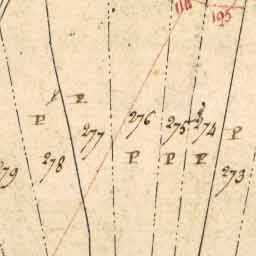 118
195
P
P
277
276
275
274
P
P
P
P
279
278
273